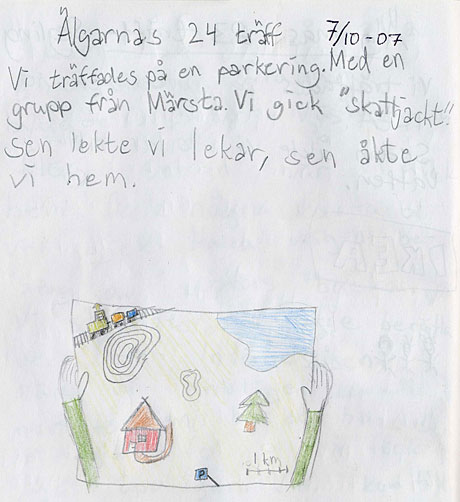 Älgarnas 24 träff 7/10-07
Vi träffades på en parkering. Med en
grupp från Märsta. Vi gick "skattjackt"!
Sen lekte vi lekar, sen åkte
vi hem.
P
1 km